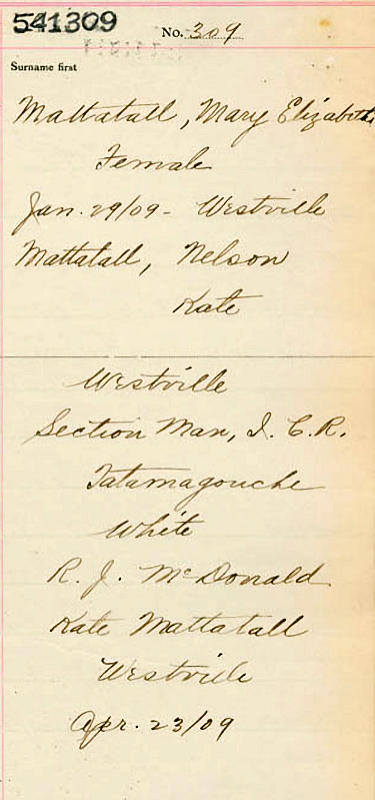 541309
No. 309
Surname first
Mattatall, Mary Elizabeth
Female
Jan. 29/09 - Westville
Mattatall, Nelson
Kate
Westville
Section Man, I. C. R.
Tatamagouche
White
R. J. McDonald
Kate Mattatall
Westville
Apr. 23/09